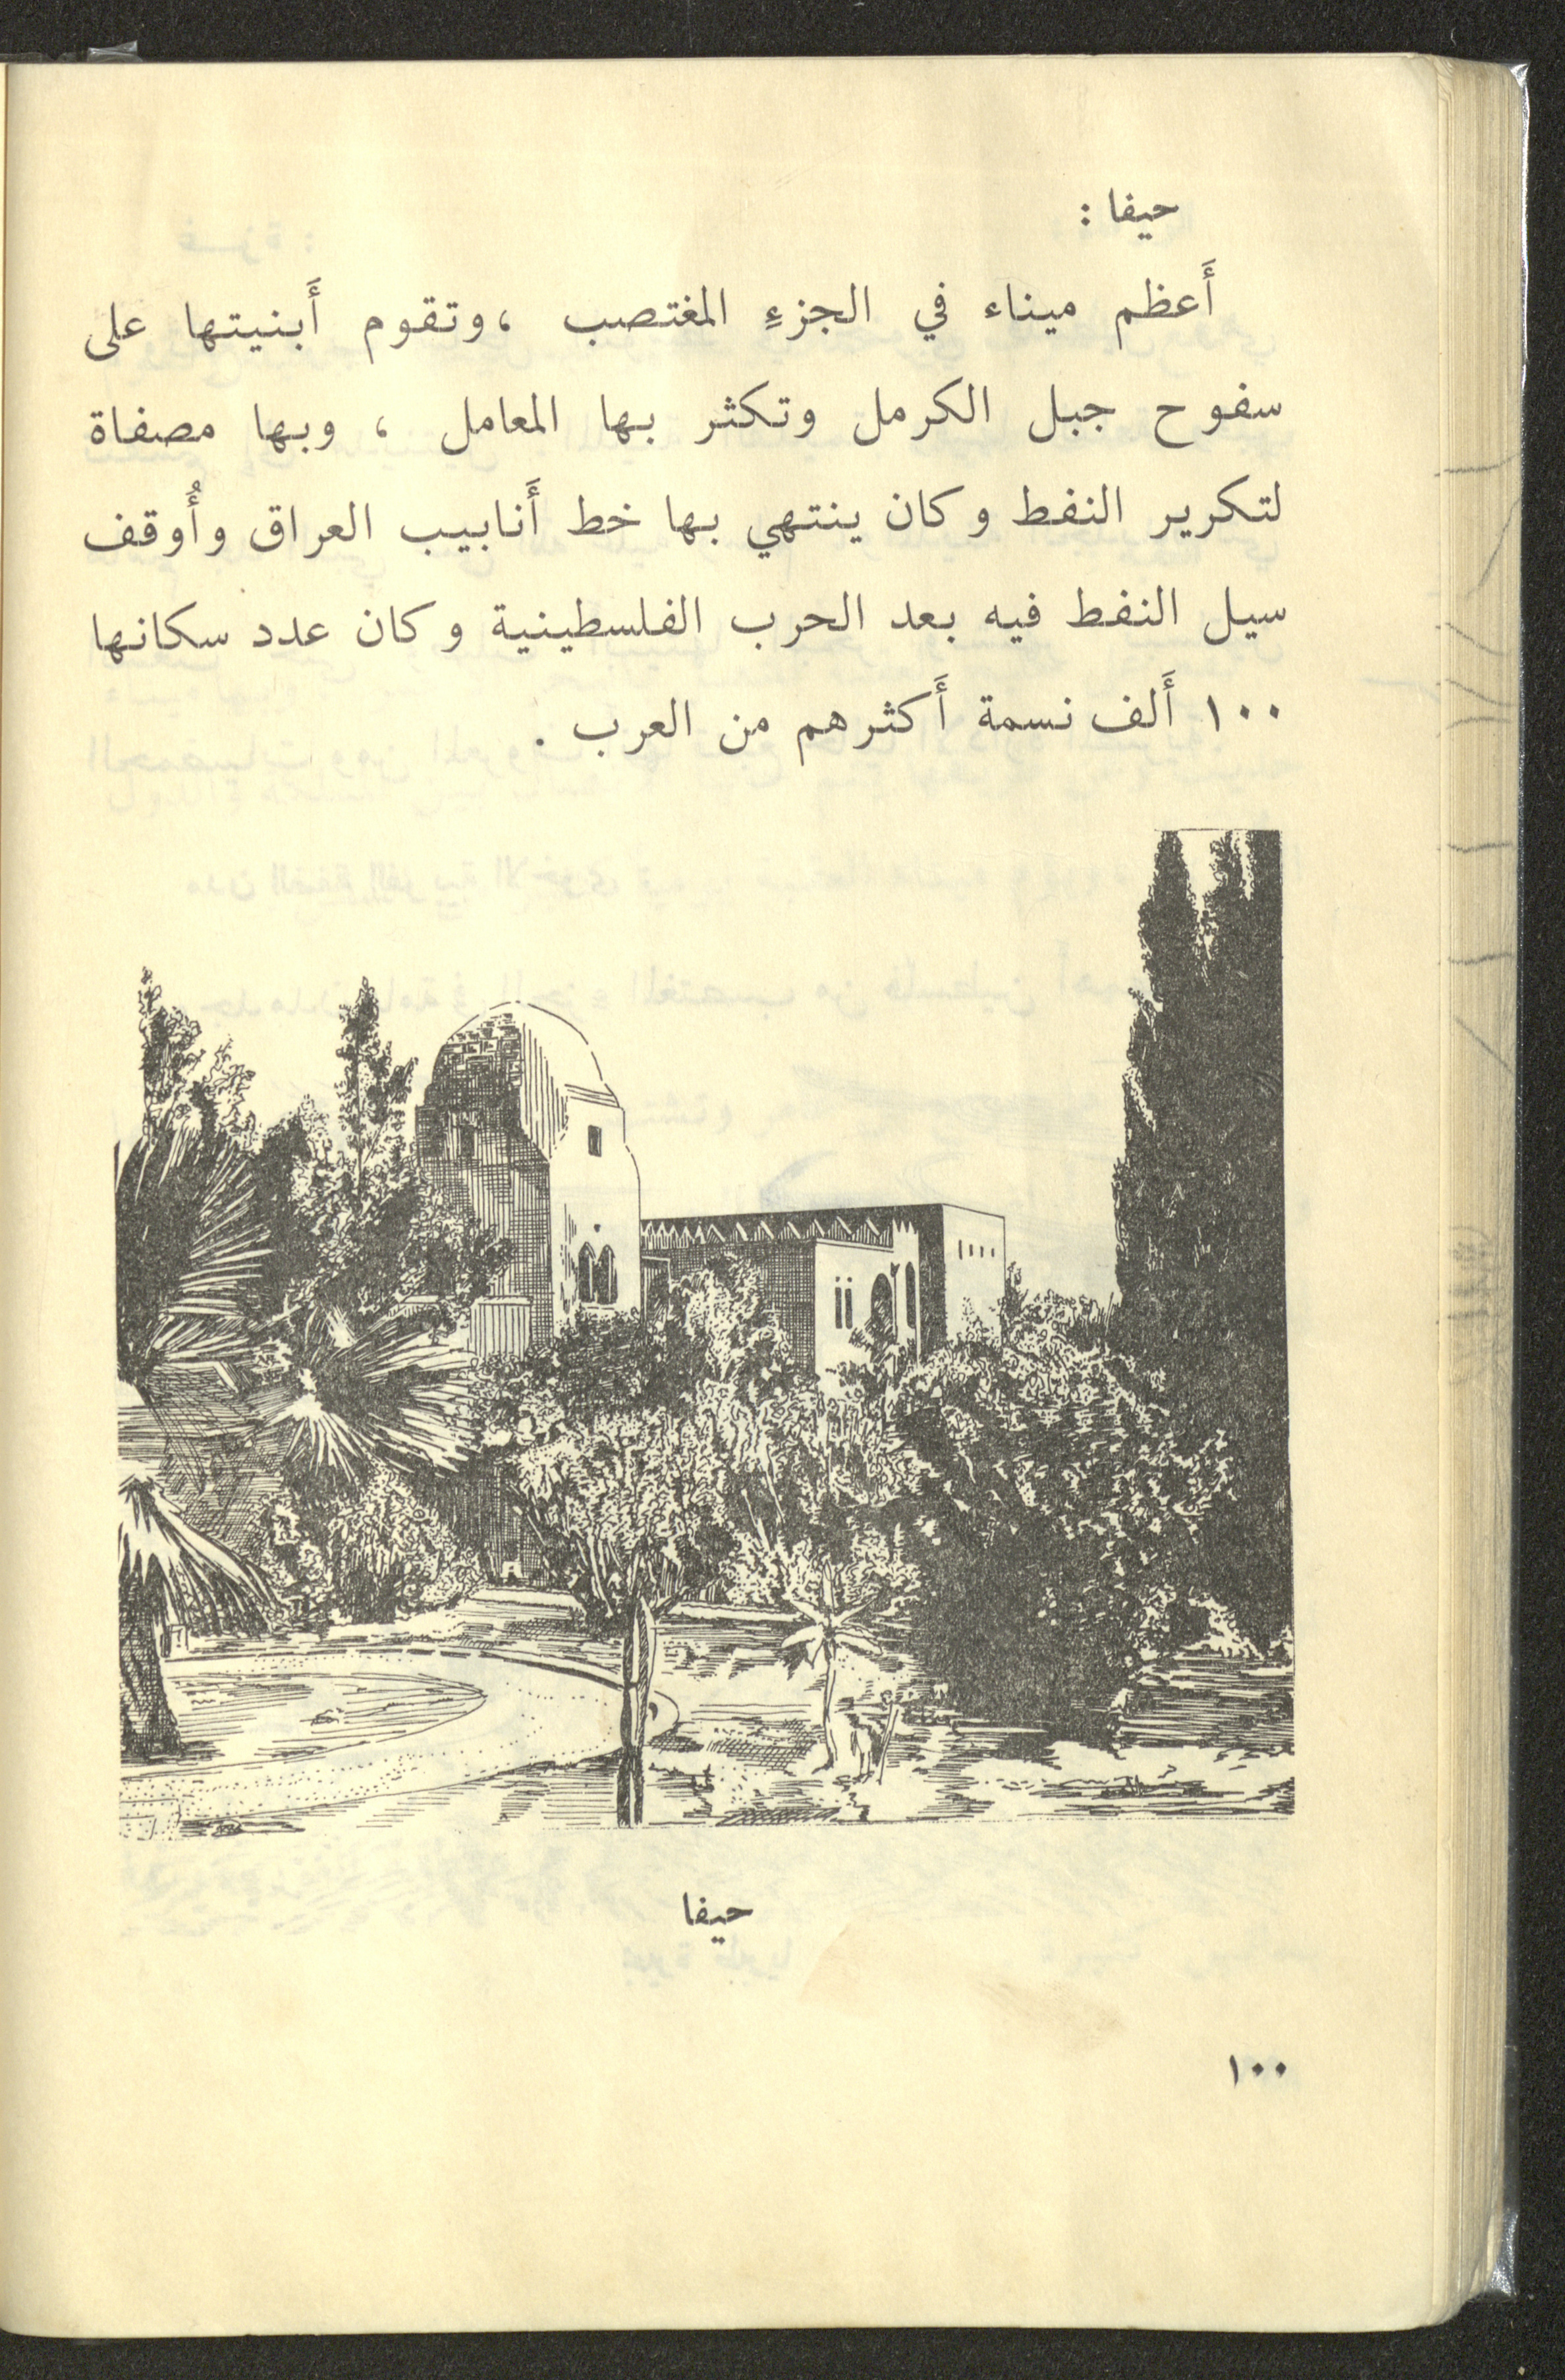 حيفا :
أَعظم ميناء في الجزءِ المغتصب ، وتقوم أَبنيتها على
سفوح جبل الكرمل وتكثر بها المعامل ، وبها مصفاة
لتكرير النفط وكان ينتهي بها خط أَنابيب العراق وأُوقف
سيل النفط فيه بعد الحرب الفلسطينية وكان عدد سكانها
١٠٠ أَلف نسمة أَكثرهم من العرب .
حيفا
١٠٠